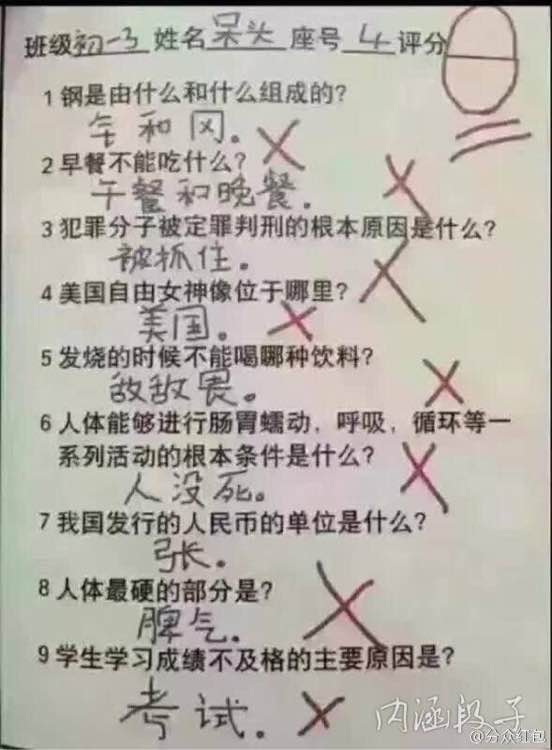 班级初一3姓名呆头座号4评分
1钢是由什么和什么组成的?
钅和冈。
2早餐不能吃什么?
午餐和晚餐.
3犯罪分子被定罪判刑的根本原因是什么?
被抓住。
4美国自由女神像位于哪里?
美国。
5发烧的时候不能喝哪种饮料?
敌敌畏。
6人体能够进行肠胃蠕动，呼吸，循环等一
系列活动的根本条件是什么?
人没死。
7我国发行的人民币的单位是什么?
张.
8人体最硬的部分是?
脾气.
9学生学习成绩不及格的主要原因是?
考试.
内涵段子
@分众红包